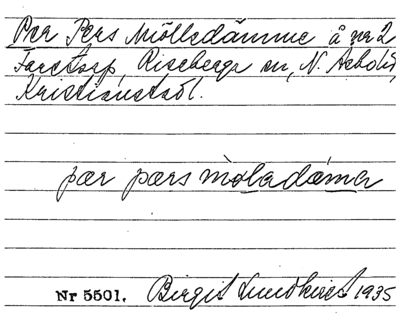 Per Pers Mölledämme å nr 2
Farstorp, Riseberga sn, N. Åsbo hd,
Kristianstad l.
pær pærs mòladámːa
Nr 5501. Birgit Lundkvist 1935